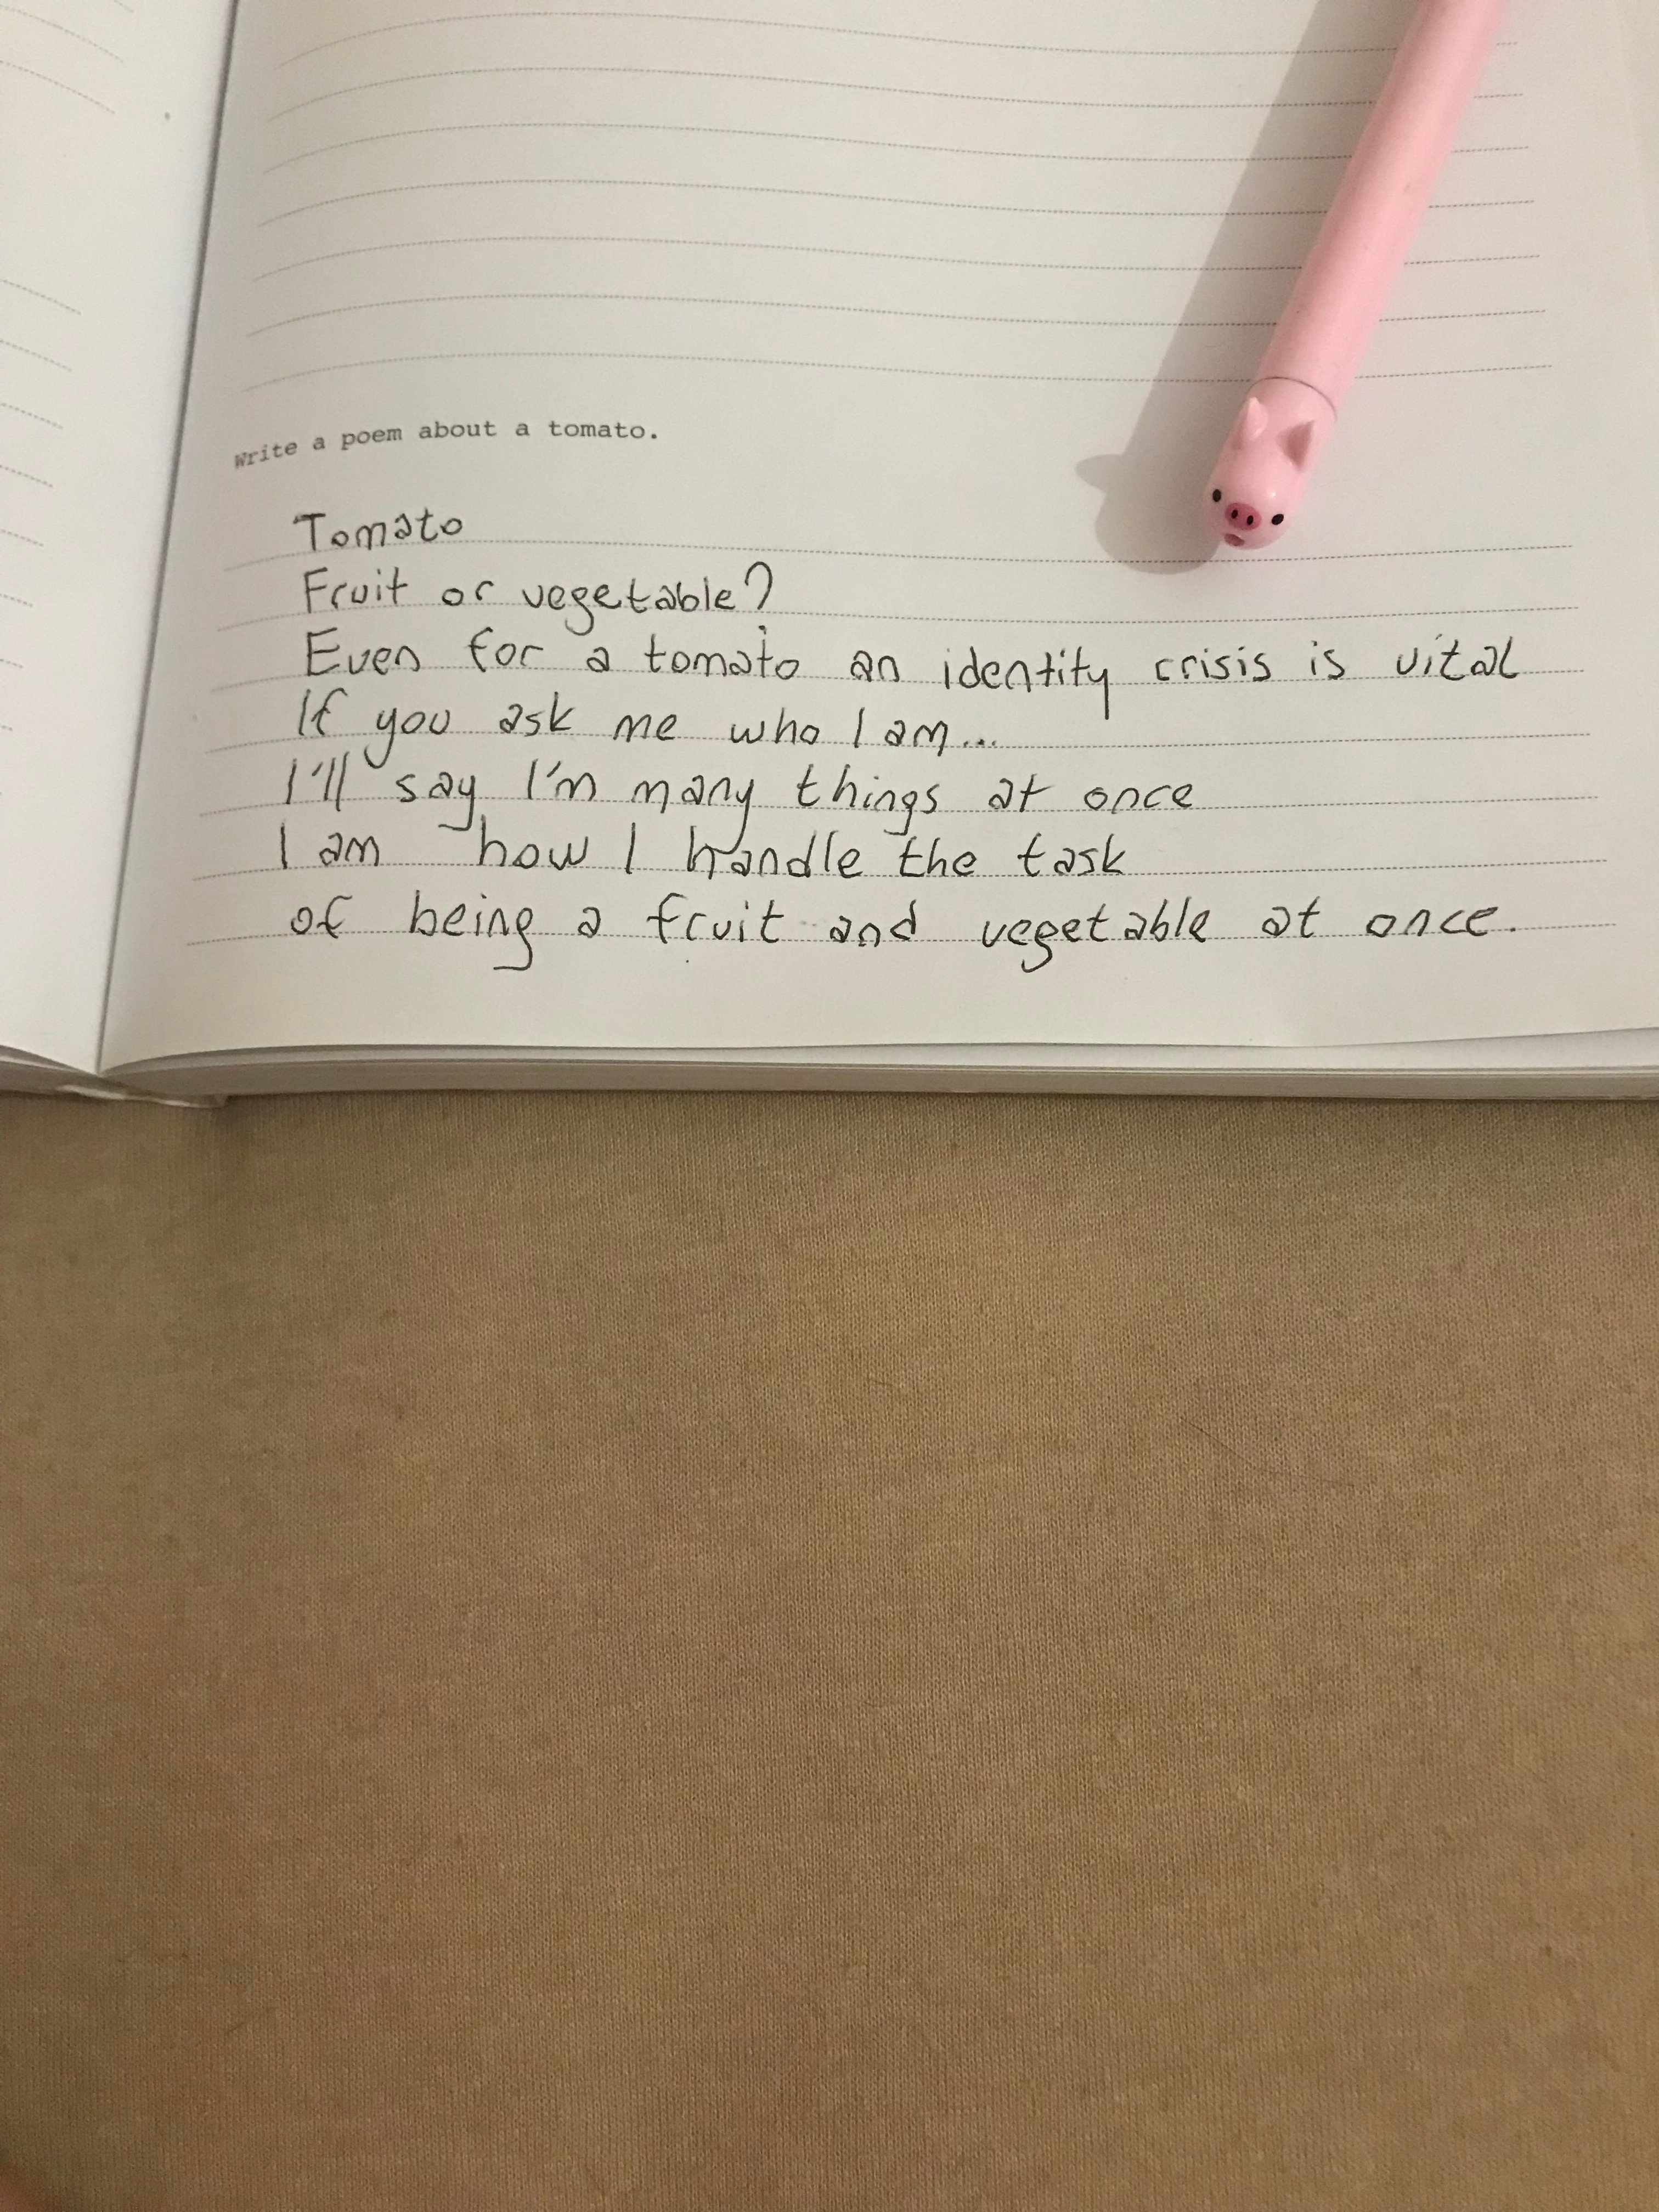 Write a poem about a tomato.
Tomato
Fruit or vegetable?
Even for a tomato an identity crisis is vital
If you ask me who I am...
I'll say I'm many things at once
I am how I handle the task
of being a fruit and vegetable at once.